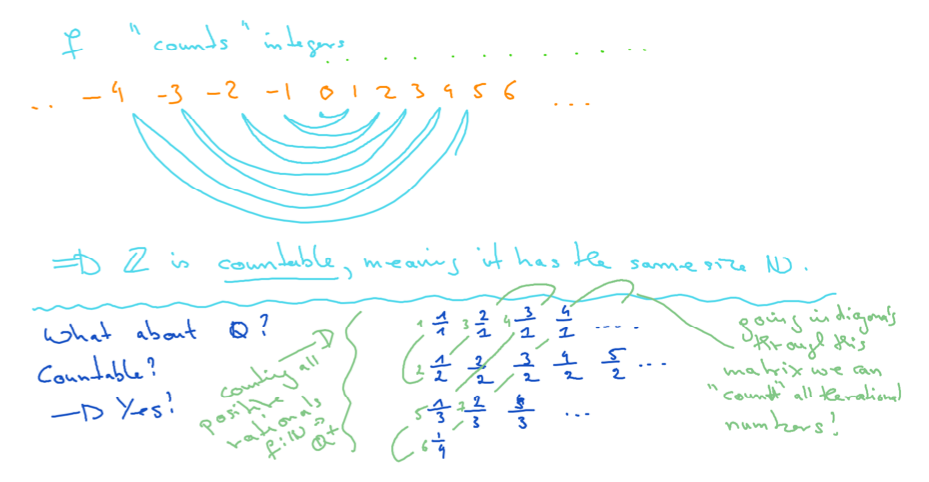 f "counts" integers
.. -4 -3 -2 -1 0 1 2 3 4 5 6 ...
=D ℤ is countable, meaning it has the same size ℕ.
What about ℚ?
Countable?
—D Yes!
counting all
positive
rationals
f: ℕ → ℚ+
1 1/1 3 2/1 4 3/1 4/1 ....
2 1/2 2/2 3/2 4/2 5/2 ...
5 1/3 7 2/3 3/3 ...
6 1/4
going in diagonals
through this
matrix we can
"count" all the rational
numbers!